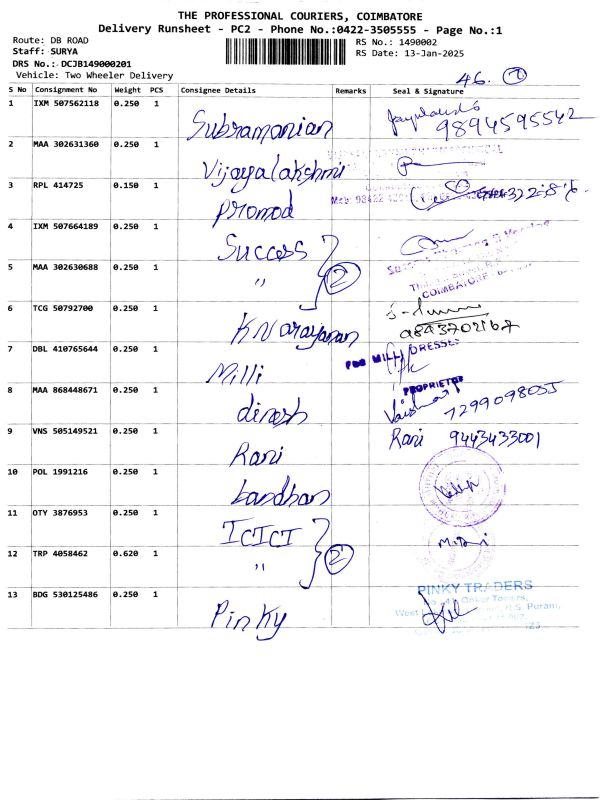 THE PROFESSIONAL COURIERS, COIMBATORE
Delivery Runsheet - PC2 - Phone No.:0422-3505555 - Page No.:1
Route: DB ROAD
RS No.: 1490002
Staff: SURYA
RS Date: 13-Jan-2025
DRS No.: DCJB149000201
Vehicle: Two Wheeler Delivery
46. 7
S No Consignment No Weight PCS Consignee Details Remarks Seal & Signature
1 IXM 507562118 0.250 1 Subramanian 9894595542
2 MAA 302631360 0.250 1 Vijayalakshmi
3 RPL 414725 0.150 1 Promod
4 IXM 507664189 0.250 1 Success
5 MAA 302630688 0.250 1 " 2 COIMBATORE
6 TCG 50792700 0.250 1 K Narayanan 9843702167
7 DBL 410765644 0.250 1 Milli FOR MILLI DRESSES
8 MAA 868448671 0.250 1 dinesh PROPRIETOR 7299098055
9 VNS 505149521 0.250 1 Rani Rani 9443433001
10 POL 1991216 0.250 1 bandhan
11 OTY 3876953 0.250 1 ICICI
12 TRP 4058462 0.620 1 " 2
13 BDG 530125486 0.250 1 Pinky PINKY TRADERS
Towers,
West R.S. Puram,